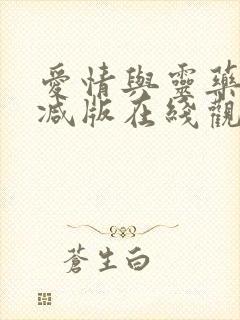 愛情與靈藥
減版在綫觀
蒼生白